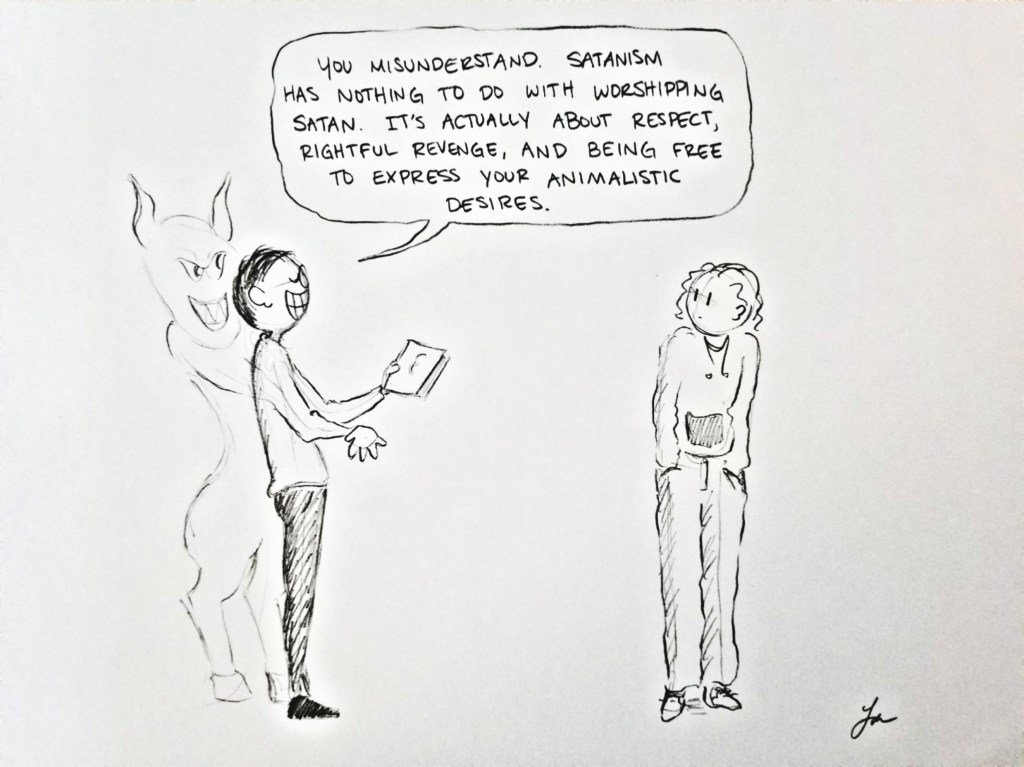 YOU MISUNDERSTAND. SATANISM
HAS NOTHING TO DO WITH WORSHIPPING
SATAN. IT'S ACTUALLY ABOUT RESPECT,
RIGHTFUL REVENGE, AND BEING FREE
TO EXPRESS YOUR ANIMALISTIC
DESIRES.